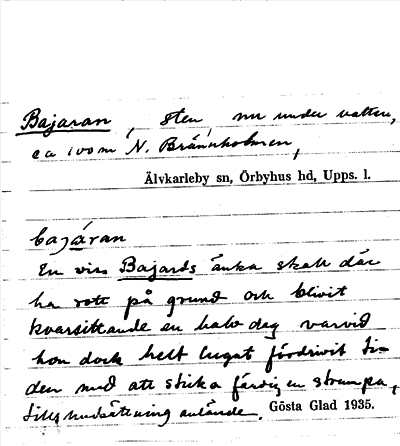 Bajaran, sten, nu under vatten,
ca 100 m N. Brännholmen,
Älvkarleby sn, Örbyhus hd, Upps. l.
bajáran
En viss Bajards änka skall där
ha rott på grund och blivit
kvarsittande en halv dag varvid
hon dock helt lugnt fördrivit ti-
den med att sticka färdig en strumpa,
tills undsättning anlände. Gösta Glad 1935.